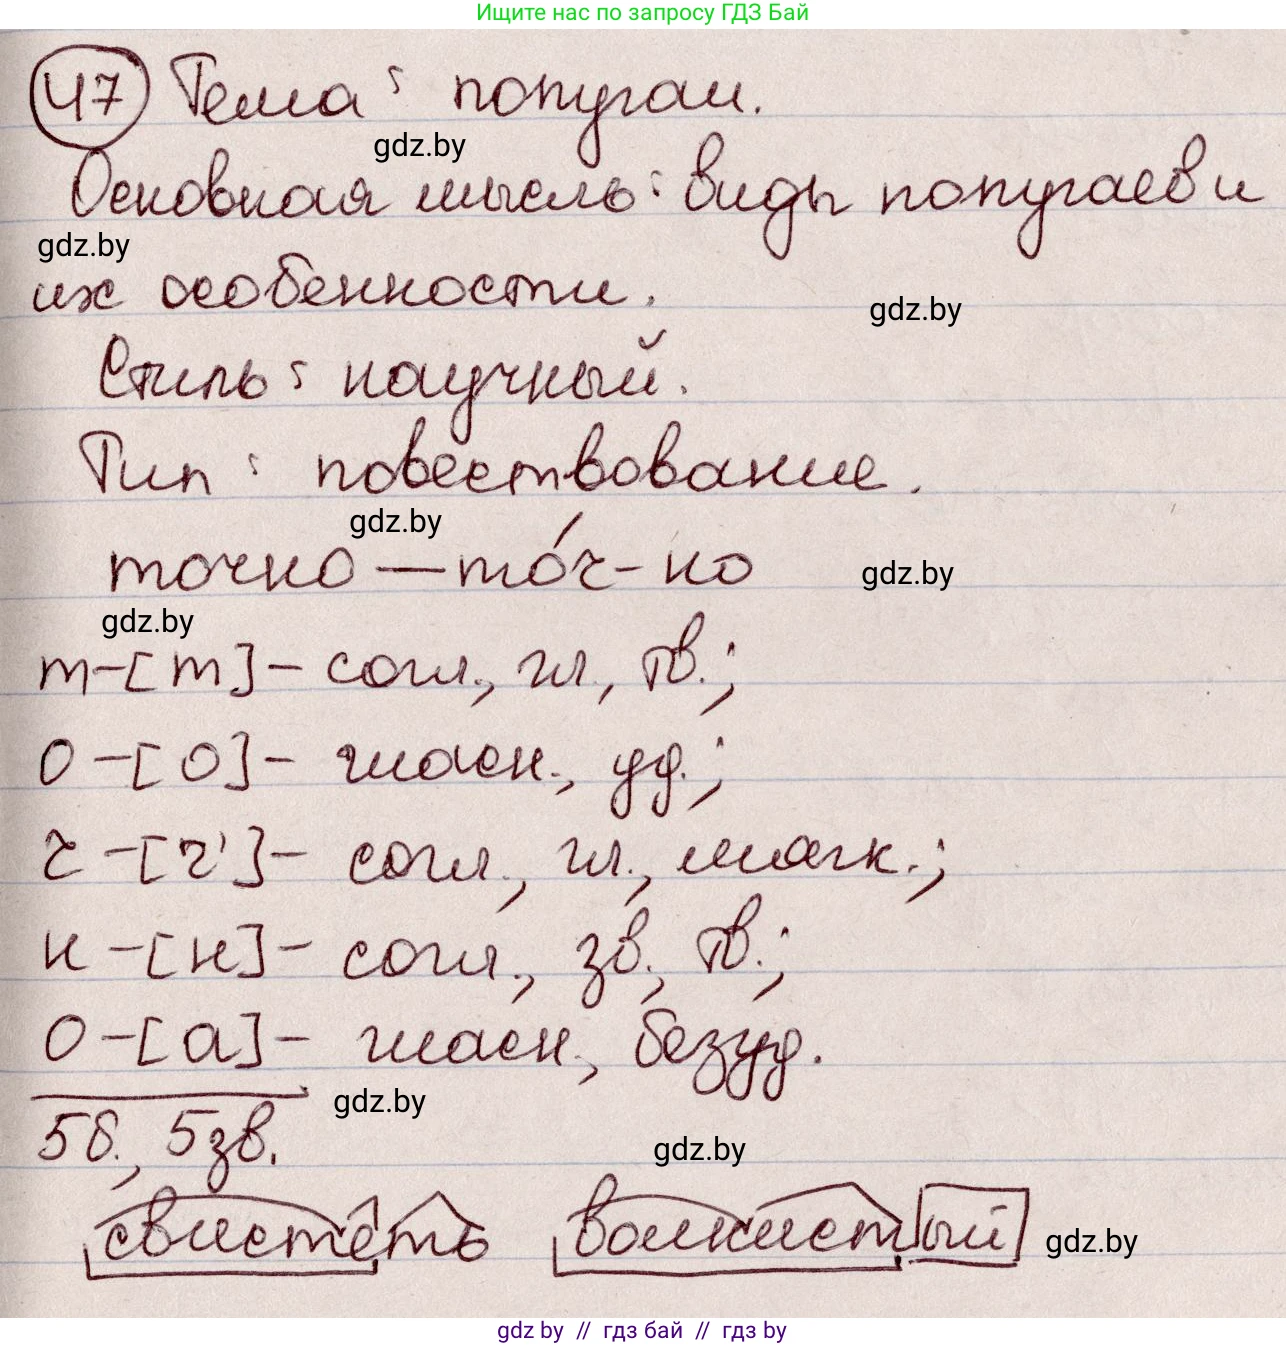 Ищите нас по запросу ГДЗ Бай
47 Тема: попугаи.
gdz.by
Основная мысль: виды попугаев и
gdz.by
их особенности.
gdz.by
Стиль: научный.
Тип: повествование.
gdz.by
точно — то́ч-но
gdz.by
gdz.by
т-[т]- согл., гл., тв.;
о-[о]- гласн., уд.;
ч-[ч']- согл., гл., мягк.;
н-[н]- согл., зв., тв.;
о-[а]- гласн., безуд.
gdz.by
5б., 5зв.
gdz.by
свистеть волнистый
gdz.by
gdz by // гдз бай // гдз by